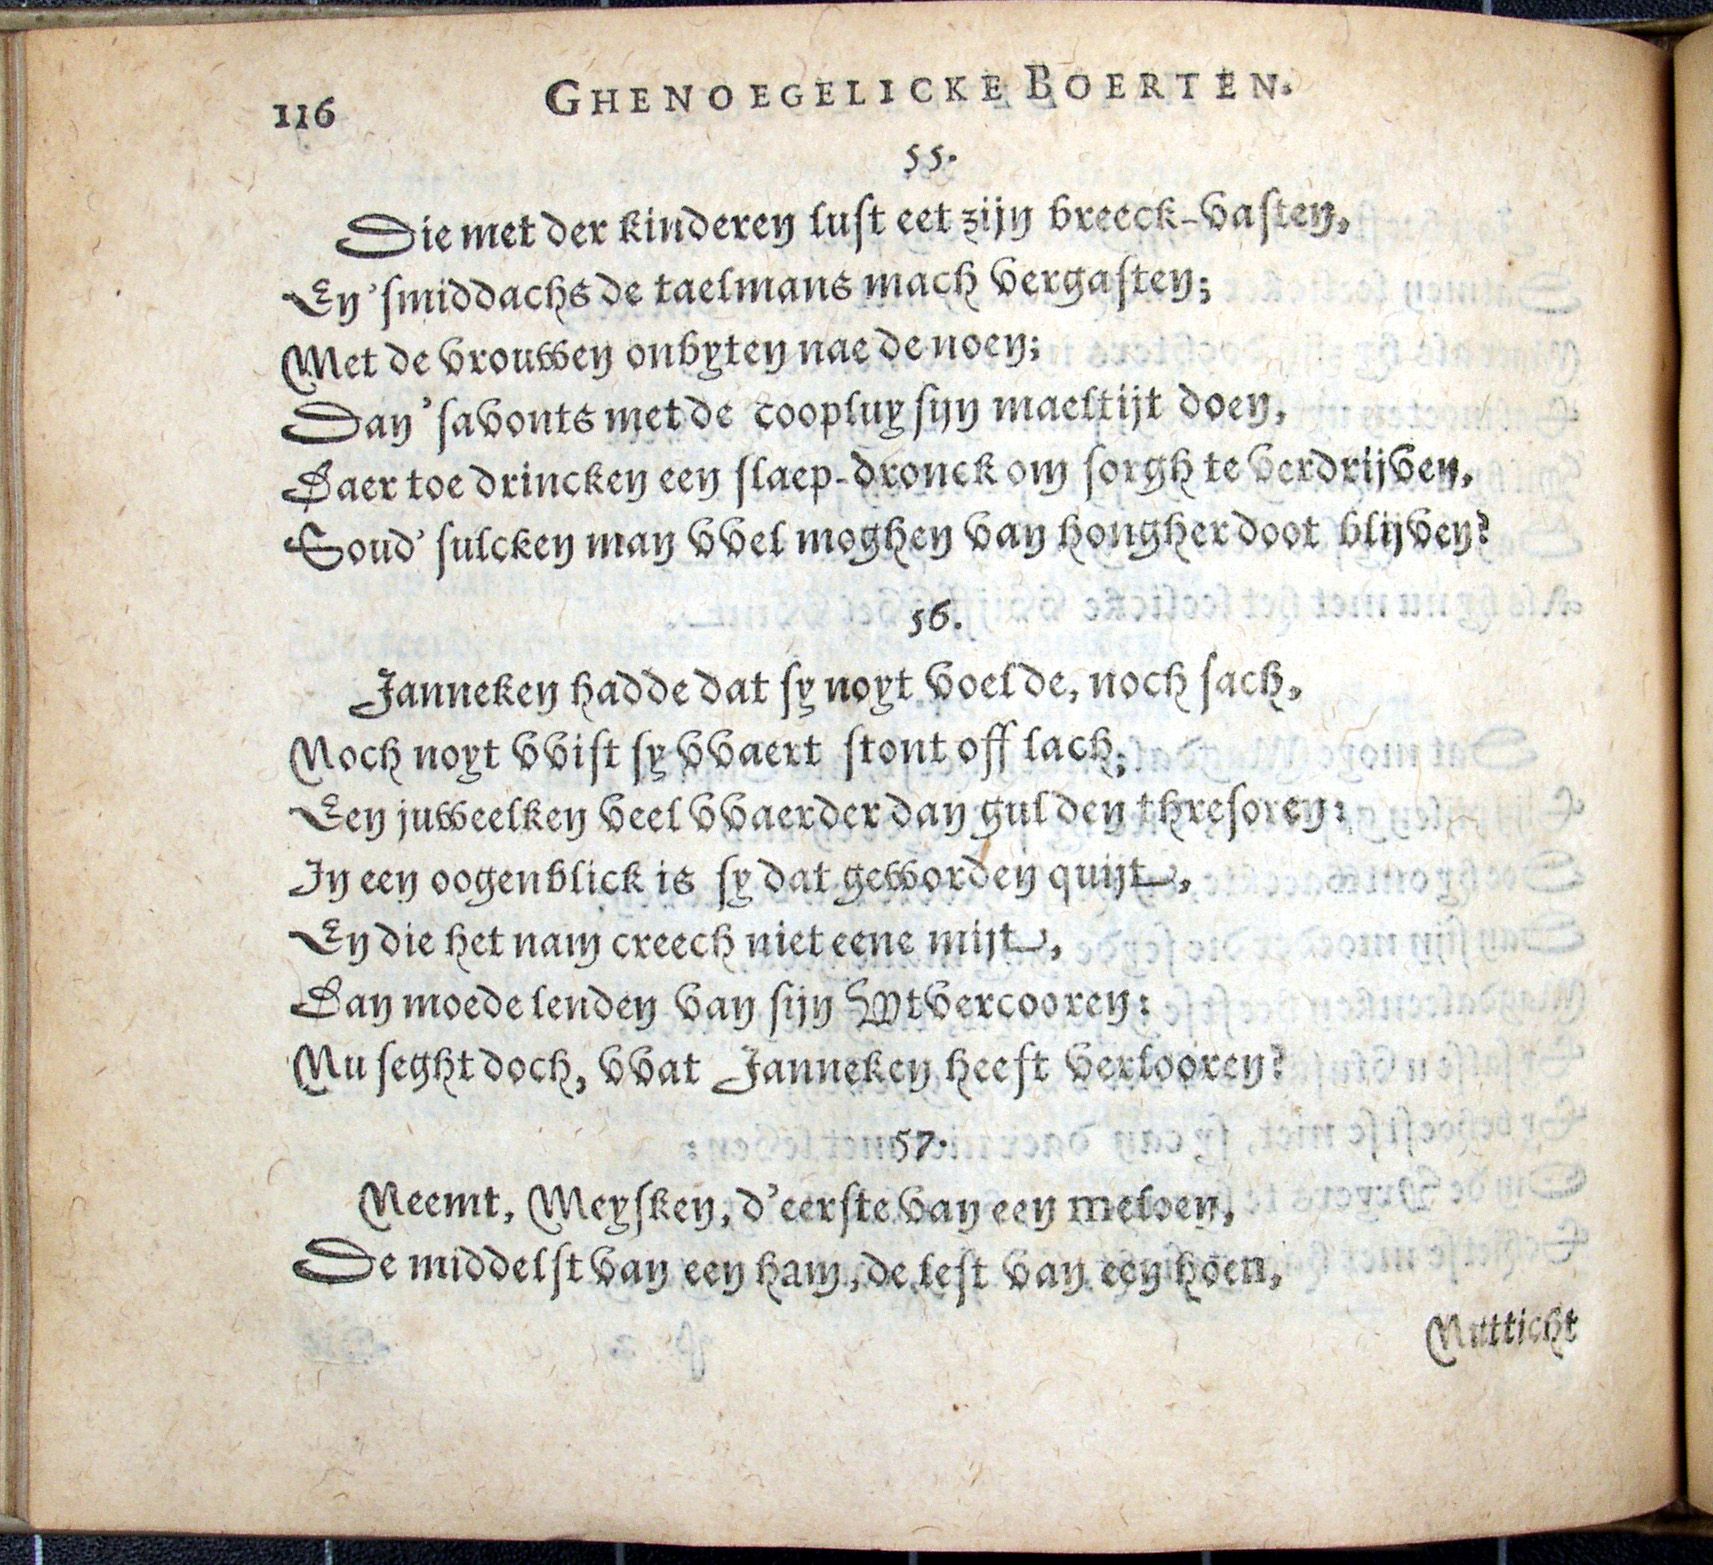 116 GHENOEGELICKE BOERTEN.
55.
Die met der kinderen lust eet zijn breeck-vasten,
En 'smiddachs de taelmans mach vergasten;
Met de vrouwen onbyten nae de noen;
Dan 'savonts met de coopluy sijn maeltijt doen,
Daer toe drincken een slaep-dronck om sorgh te verdrijven,
Soud' sulcken man vvel moghen van hongher doot blijven?
56.
Janneken hadde dat sy noyt voelde, noch sach,
Noch noyt vvist sy vvaert stont off lach;
Een juweelken veel vvaerder dan gulden thresoren:
In een oogenblick is sy dat geworden quijt,
En die het nam creech niet eene mijt,
Dan moede lenden van sijn Wtvercooren:
Nu seght doch, vvat Janneken heeft verlooren?
57.
Neemt, Meysken, d'eerste van een meloen,
De middelst van een ham, de lest van een hoen,
Nutticht